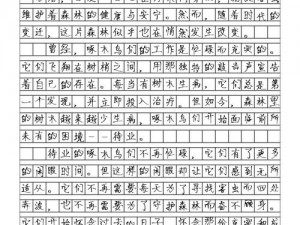 维护着森林的健康与安宁。然而，随着时代的
变迁，这片森林似乎也在悄然发生改变。
曾经，啄木鸟们的工作是忙碌而充实的。
它们飞翔在树梢之间，用那独特的敲击声宣告
着自己的存在。每当有树木生病，它们总是第
一个发现，并立即投入治疗。但如今，森林里
的树木越来越少生病，啄木鸟们开始面临前所
未有的困境——待业。
待业的啄木鸟们不再忙碌，它们有了更多
的闲暇时间。但这样的闲暇却让它们感到无所
适从。它们不再需要每天为了寻找害虫而四处
奔波，也不再需要为了守护森林而奋不
它们开始怀念过去的日子，怀念那份充实和成